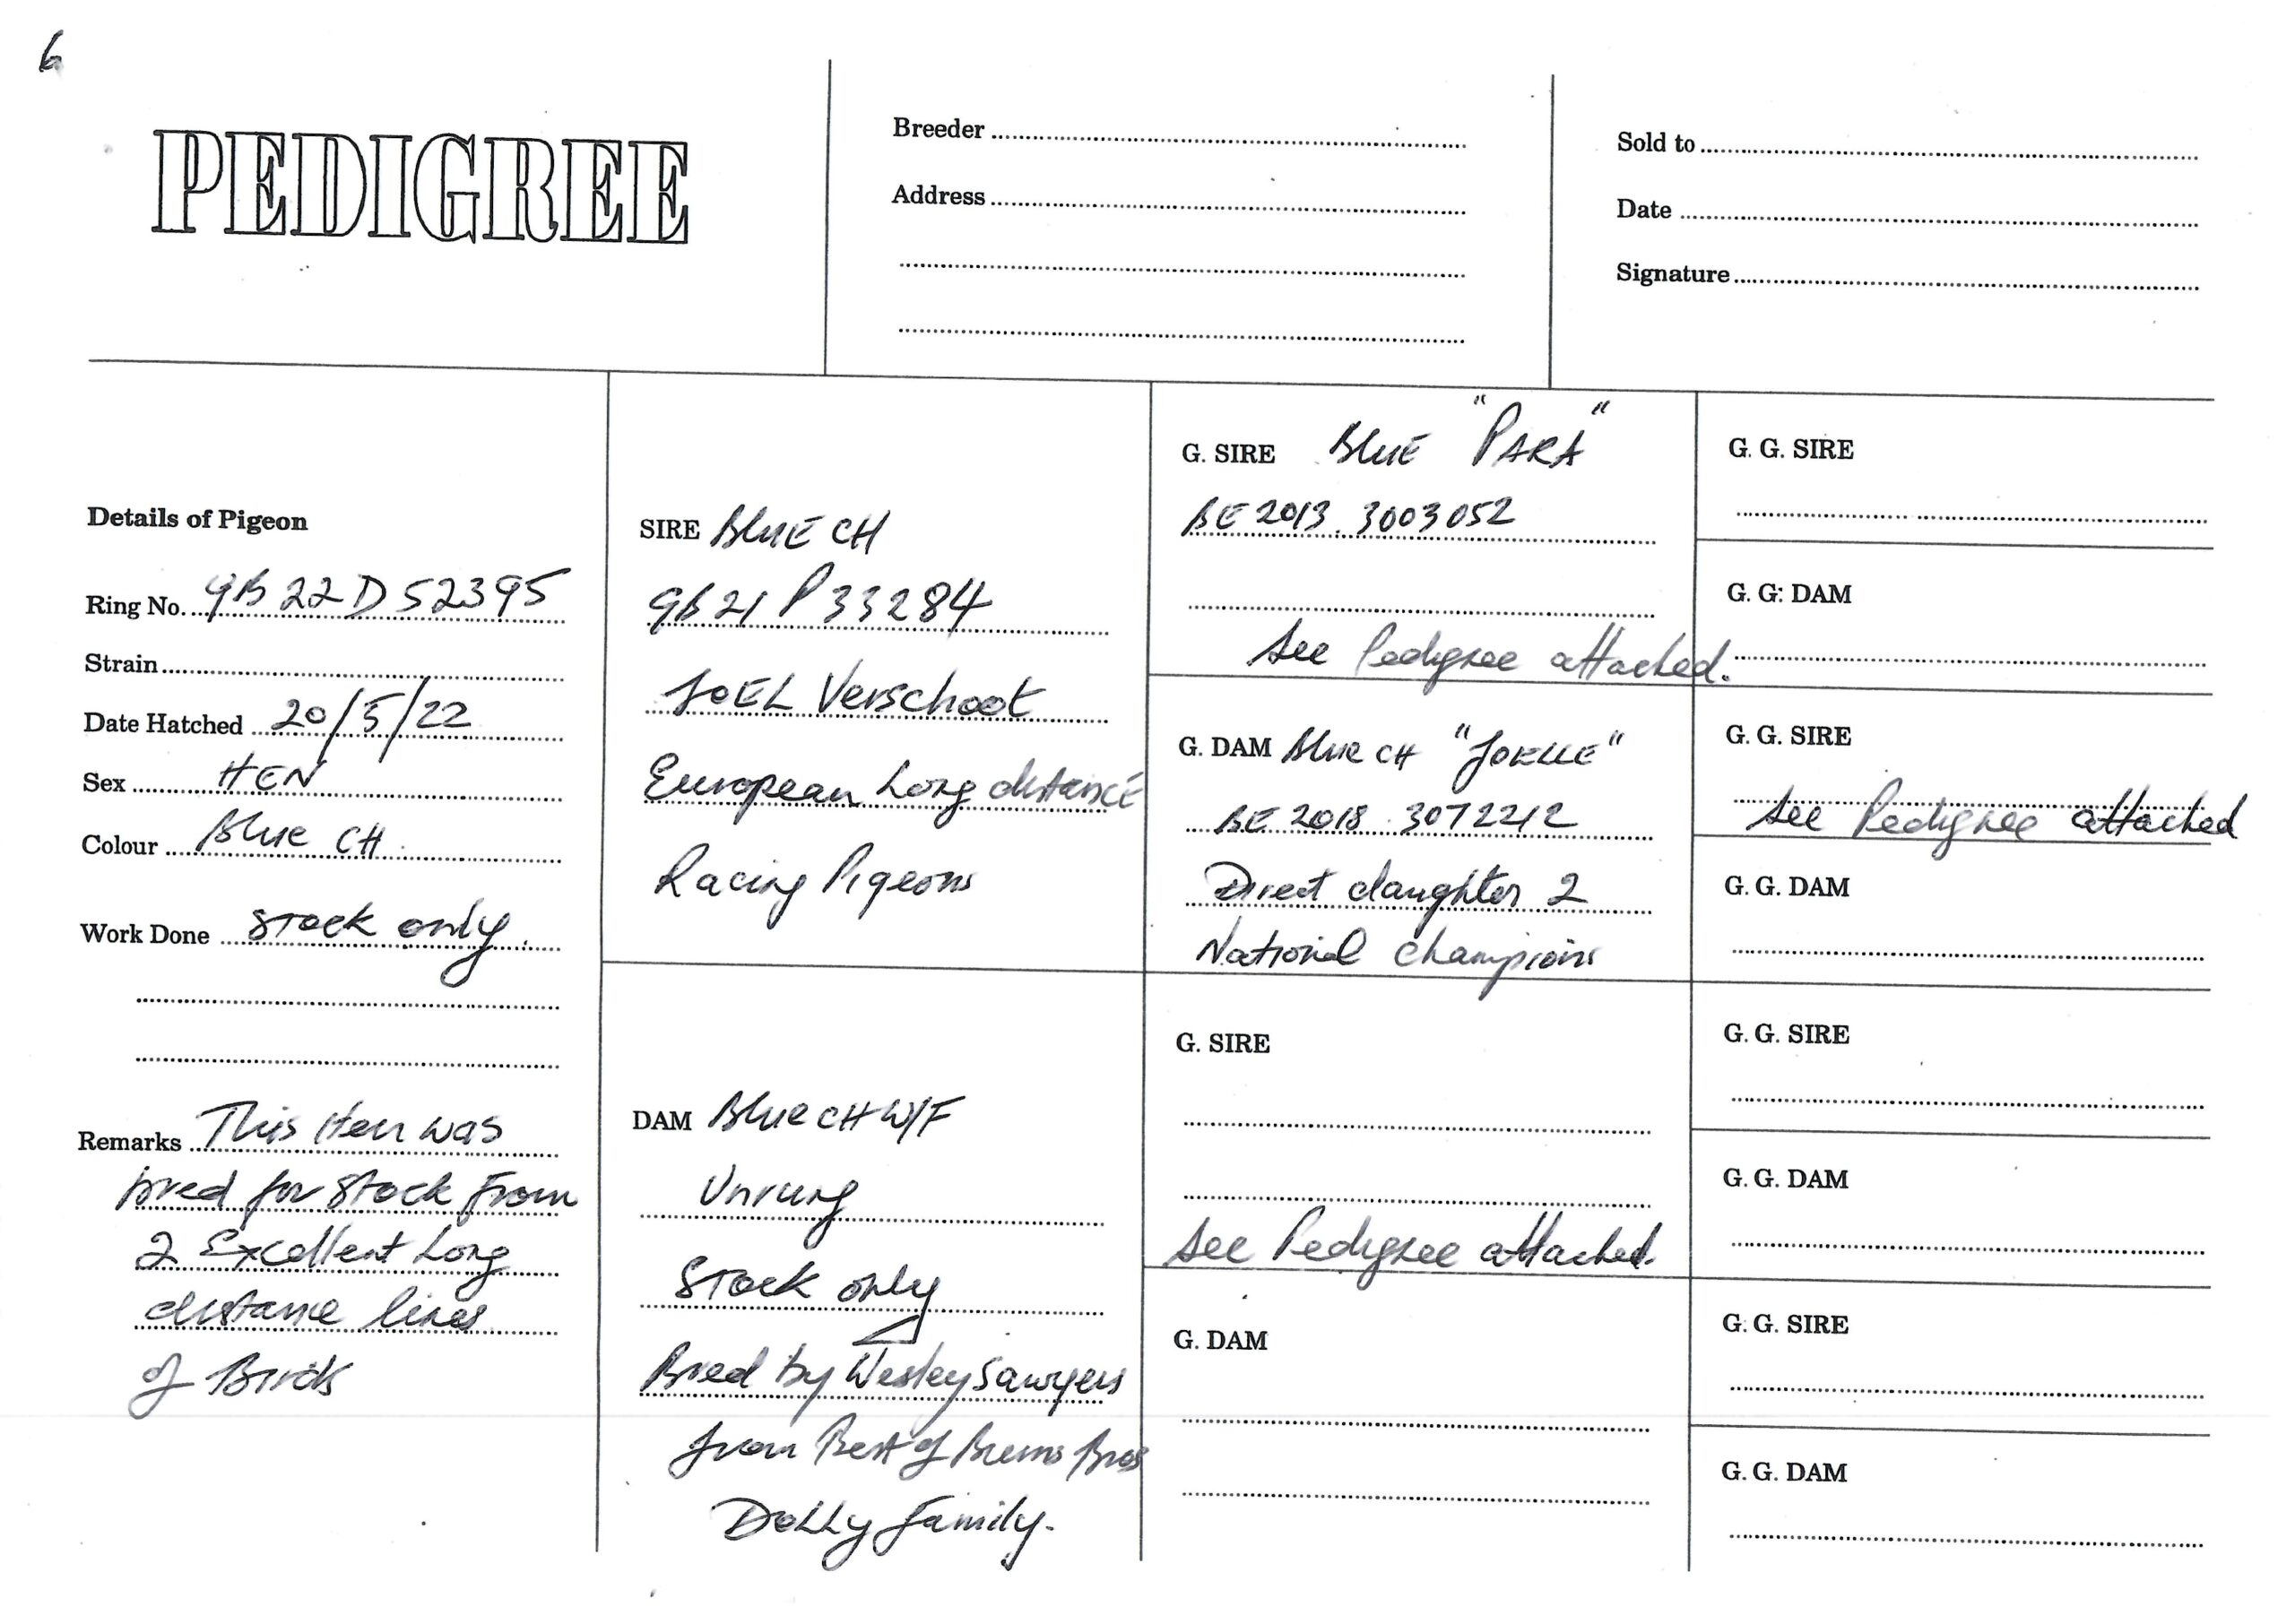 6
PEDIGREE
Breeder
Address
Sold to
Date
Signature
Details of Pigeon
Ring No. GB 22 D 52395
Strain
Date Hatched 20/5/22
Sex HEN
Colour Blue CH
Work Done Stock only.
Remarks This Hen was
bred for Stock From
2 Excellent Long
distance lines
of Birds
SIRE BLUE CH
GB 21 P 33284
JOEL Verschoot
European Long distance
Racing Pigeons
DAM Blue CH W/F
Unrung
Stock only
Bred by Wesley Sawyers
from Best of Brems Bros
DoLLy Family.
G. SIRE BLUE "PARA"
BE 2013. 3003052
See Pedigree attached.
G. DAM Blue CH "JOELLE"
BE 2018 3072212
Direct daughter 2
National Champions
G. SIRE
See Pedigree attached.
G. DAM
G. G. SIRE
G. G: DAM
G. G. SIRE
See Pedigree attached
G. G. DAM
G. G. SIRE
G. G. DAM
G. G. SIRE
G. G. DAM